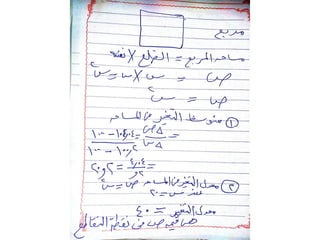 مربع
مساحه المربع = الضلع × نفسه
ص = س × س = س٢
ص = س٢
① متوسط التغير في المساحه
= Δص / Δس = ١٠٤,٠٤ - ١٠٠ / ١٠,٢ - ١٠
= ٤,٠٤ / ٠,٢ = ٢٠,٢
② معدل التغير في المساحه ص = س٢
عند س = ٢٠
معدل التغير = ٤٠